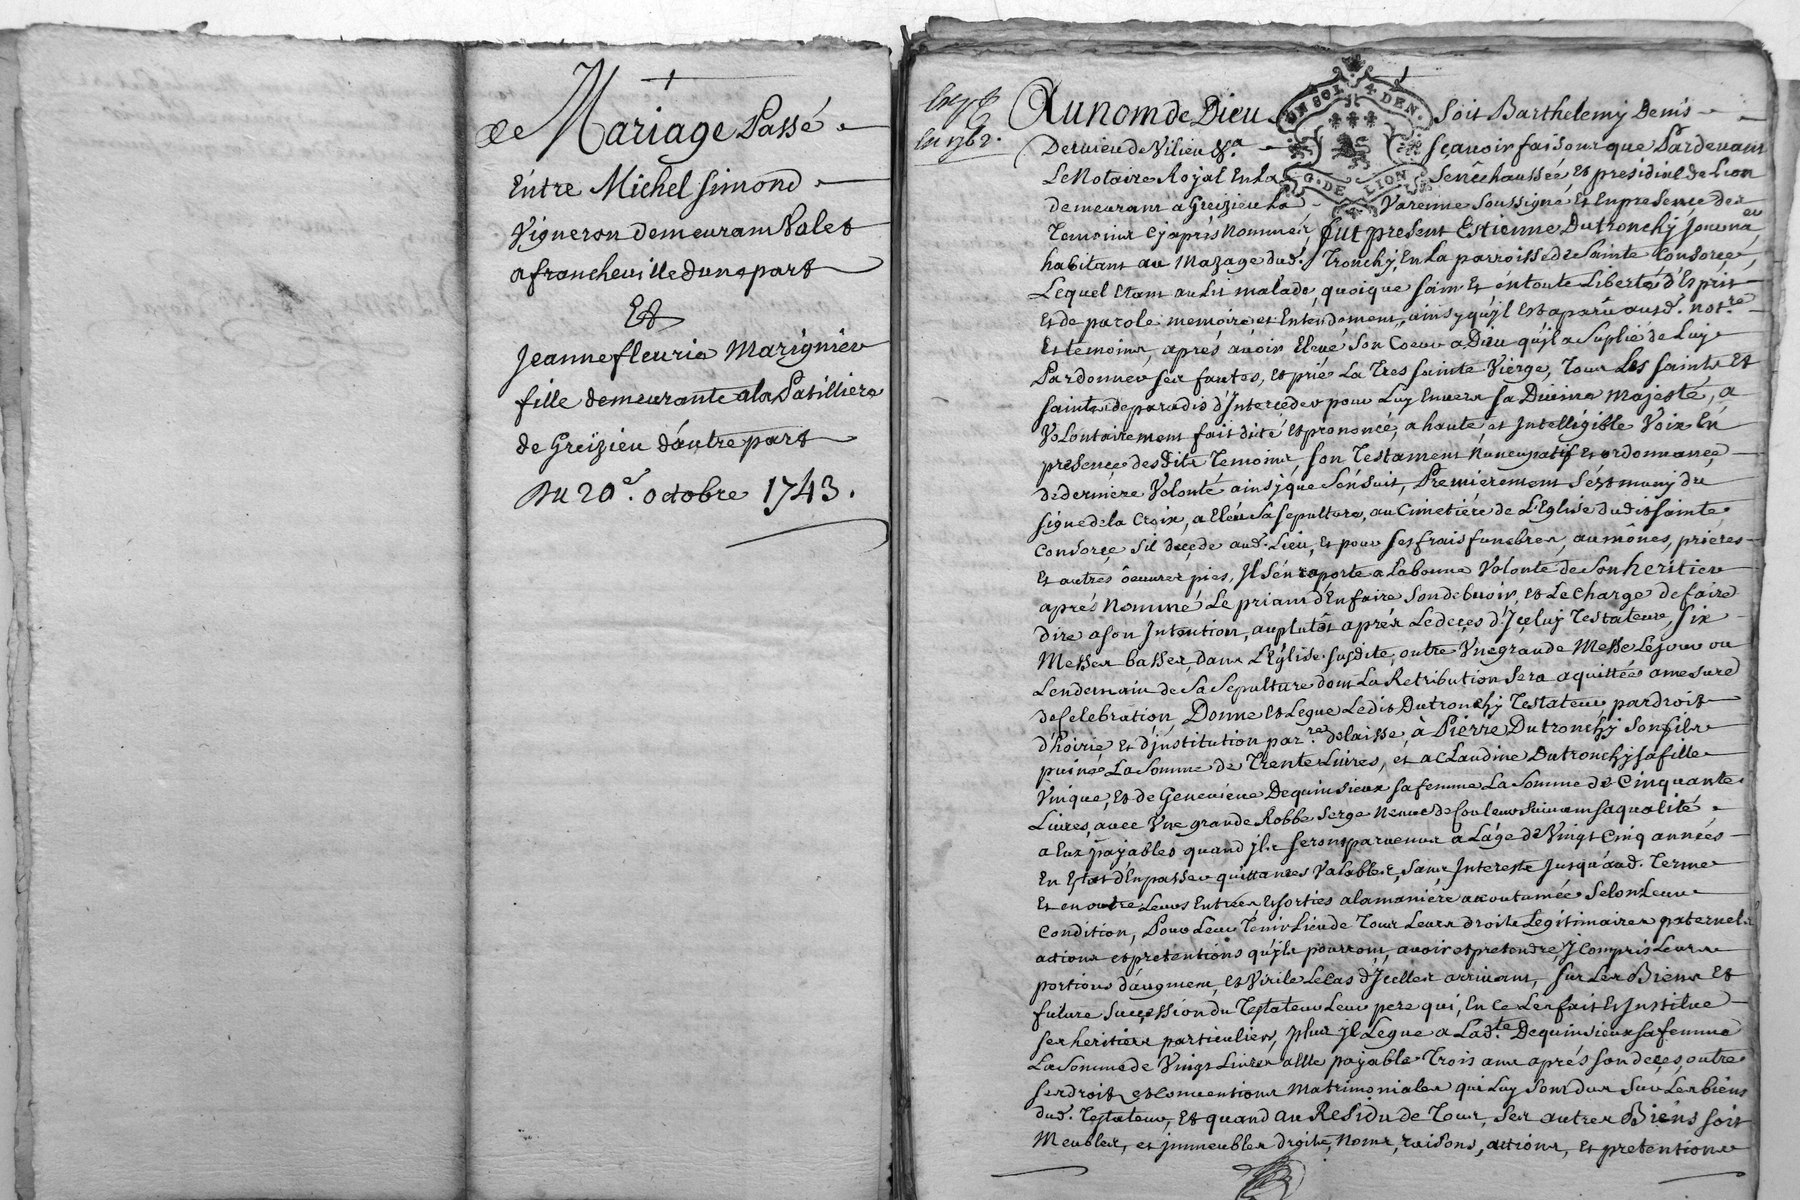 de Mariage Passé
Entre Michel Simond
Vigneron demeurant Valet
a francheville dune part
Et
Jeanne fleurie Marignier
fille demeurante a la Patilliere
de Greizieu d'autre part
Du 20e. octobre 1743.
Exp.
En 1762.
Au nom de Dieu Soit Barthelemy Denis
Dervieu de Vilieu &a sçavoir faisons que Pardevant
Le Notaire Royal En La Senêchaussée et presidial de Lion
demeurant a Greizieu La Varenne Soussigné Et En presence des
Temoins Cy après Nommés, fut present Estienne Dutronchy
habitant au Mazage dud. Tronchy, En La parroisse de Sainte Consorce,
Lequel Etant au Lit malade, quoique sain Et en toute Liberté d'Esprit
Et de parole memoire et Entendement, ainsy qu'jl Est aparû aud. Notre
Et témoins, après avoir Elevé son Coeur a Dieu qu'jl a Suplié de Luy
Pardonner ses fautes, et prié La Tres sainte Vierge, Tous Les saints Et
saintes de paradis d'Intercéder pour Luy Envers sa Divine Majesté, a
Volontairement fait dité et prononcé, a haute et Intelligible Voix En
présence desdits Temoins, son Testament Nuncupatif Et ordonnance
de derniere Volonté ainsy que S'ensuit, Premièrement s'ést muny du
signe de la Croix, a Eleu sa sepulture, au Cimetiére de L'Eglise dudit sainte
Consorce s'il decede aud. Lieu, et pour ses frais funebres, aumônes, prieres
Et autres oeuvres pies, Jl s'en raporte a La bonne Volonté de son heritier
aprés Nommé Le priant d'En faire son debvoir, et Le Charge de faire
dire a son Intention, au plutôt aprés Le decés d'Jceluy Testateur, six
Messes basses, dans L'Eglise susdite, outre Vne grande Messe Le jour ou
Lendemain de sa sepulture dont La Retribution sera aquittée a mesure
de Celebration, Donne et Legue Ledit Dutronchy Testateur, par droit
d'hoirie, et d'jnstitution par.re délaissé, à Pierre Dutronchy son fils
puiné La somme de Trente Livres, et a Claudine Dutronchy sa fille
Vnique, et de Geneviéve Dequinsieux sa femme La Somme de Cinquante
Livres, avec Vne grande Robbe Serge Neuve de Couleur Suivant sa qualité
a Eux payables quand jls seront parvenus a Lâge de Vingt Cinq années
En Etat d'En passer quittances Valables, sans Interests jusqu'aud. Terme
Et en outre Leurs Entrées Et sorties a la maniére accoutumée Selon Leur
Condition, Pour Leur Tenir Lieu de Tous Leurs droits Legitimaires paternels
actions et pretentions qu'jls pourront avoir et pretendre, Y Compris Leurs
portions d'augment, et Virile Le Cas d'Jcelles arrivant, sur Les Biens Et
future succession du Testateur Leur pere qui, En Ce Les fait Et Institue
ses heritiers particuliers, plus jl Legue a Lad.te Dequinsieux sa femme
La somme de Vingt Livres a Elle payable Trois ans aprés son decés, outre
ses droits et Conventions Matrimoniales qui Luy sont dus Sur Les biens
dud. Testateur, Et quand au Residu de Tous, ses autres Biens soit
Meubles, et jmmeubles droits, Noms, raisons, actions, et pretentions